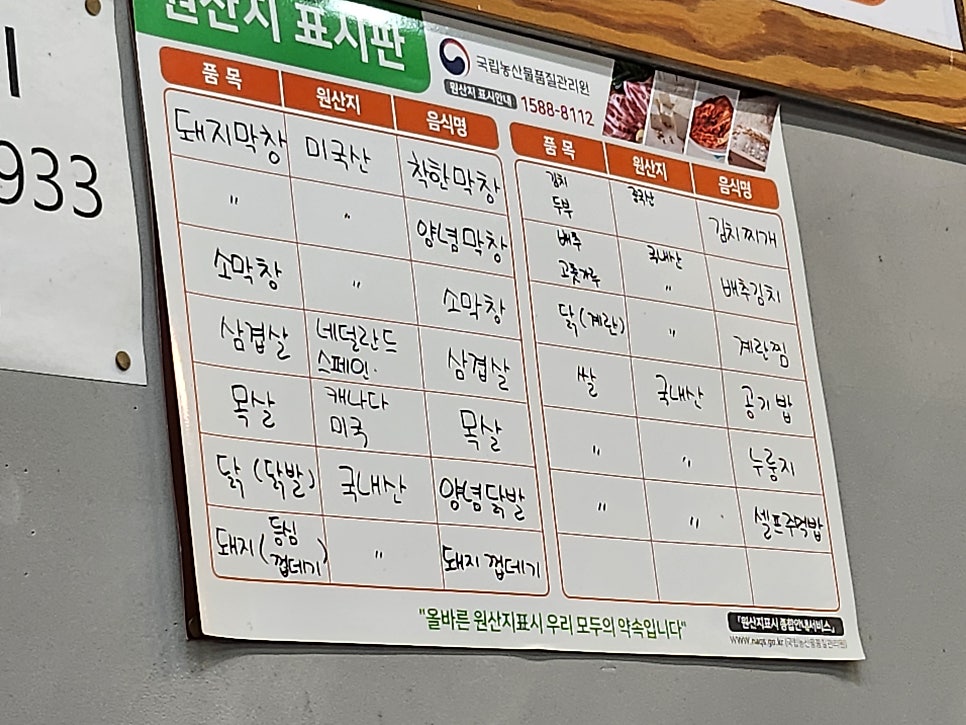 933
원산지 표시판
국립농산물품질관리원
원산지 표시안내 1588-8112
품 목 원산지 음식명
돼지막창 미국산 착한막창
" " 양념막창
소막창 " 소막창
삼겹살 네덜란드 스페인. 삼겹살
목살 캐나다 미국 목살
닭 (닭발) 국내산 양념닭발
돼지 (등심 껍데기) " 돼지 껍데기
품 목 원산지 음식명
김치 두부 중국산 김치찌개
배추 고춧가루 국내산 " 배추김치
닭(계란) " 계란찜
쌀 국내산 공기밥
" " 누룽지
" " 셀프주먹밥
"올바른 원산지표시 우리 모두의 약속입니다"
「원산지표시 종합안내서비스」
www.naqs.go.kr (국립농산물품질관리원)